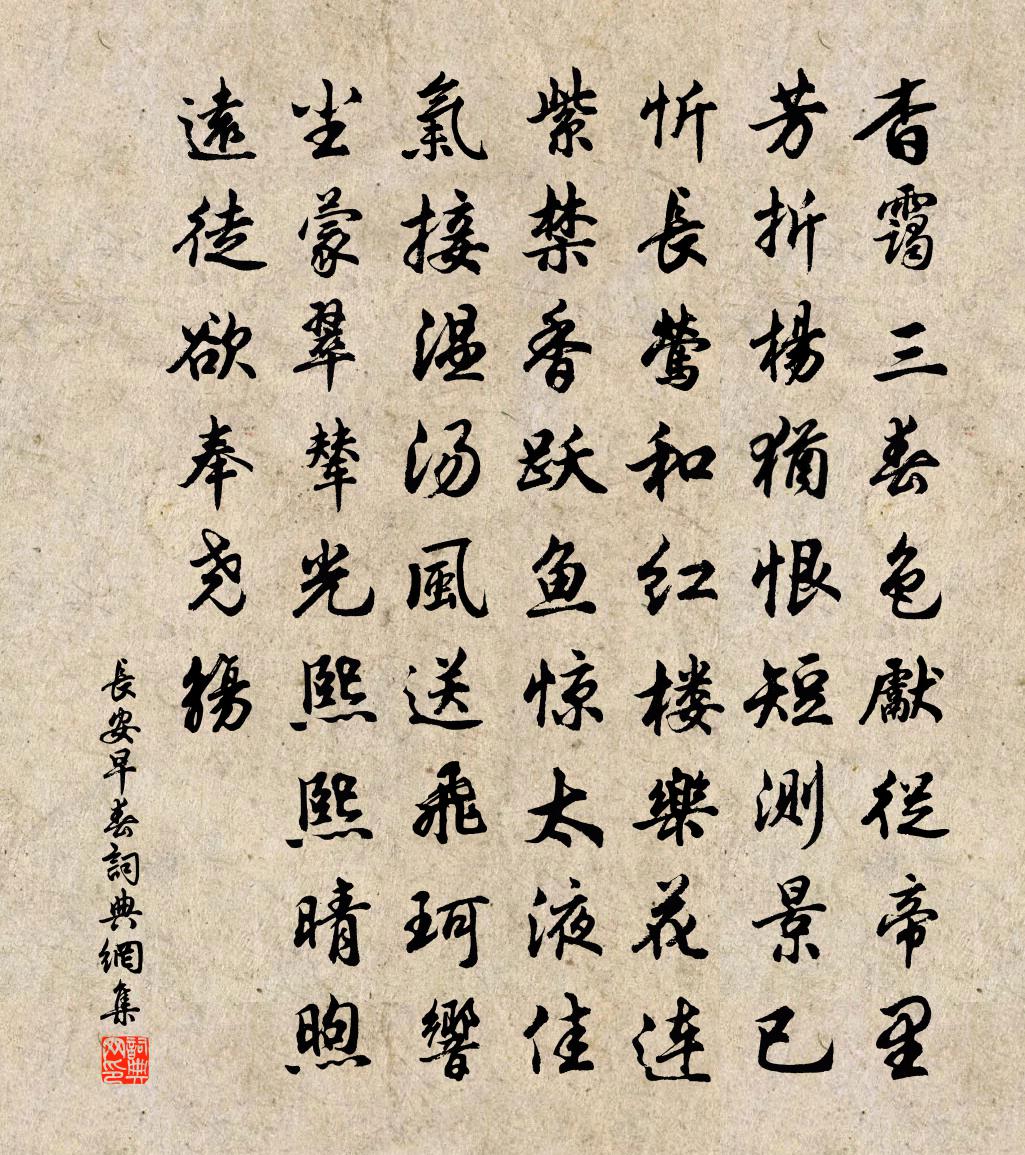 杳靄三春色獻從帝里
芳折楊猶恨短測景已
忻長鶯和红楼樂花連
紫禁香跃鱼惊太液佳
氣接温汤風送飛珂響
尘蒙翠輦光熙熙晴煦
遠徒欲奉尧觴
長安早春詞典網集
詞典网印